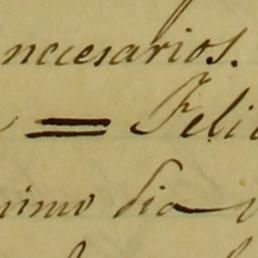 necesarios.
= Feli
nimo dia